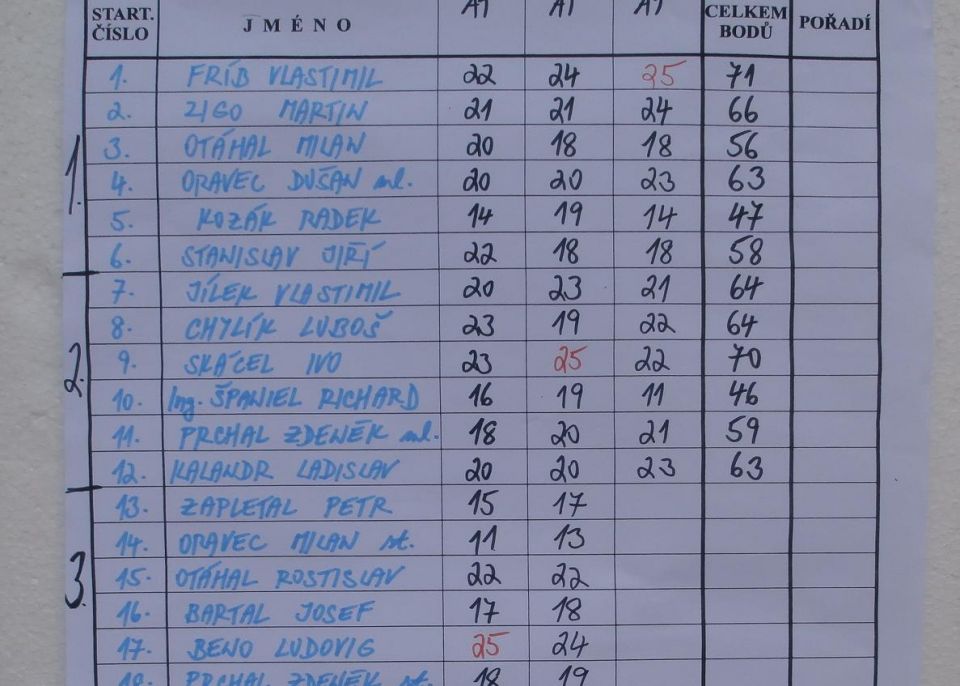 START. ČÍSLO JMÉNO AT AT AT CELKEM BODŮ POŘADÍ
1.
1. FRÍB VLASTIMIL 22 24 25 71
2. ZIGO MARTIN 21 21 24 66
3. OTÁHAL MILAN 20 18 18 56
4. ORAVEC DUŠAN ml. 20 20 23 63
5. KOZÁK RADEK 14 19 14 47
6. STANISLAV JIŘÍ 22 18 18 58
2.
7. JÍLEK VLASTIMIL 20 23 21 64
8. CHYLÍK LUBOŠ 23 19 22 64
9. SKÁCEL IVO 23 25 22 70
10. Ing. ŠPANIEL RICHARD 16 19 11 46
11. PRCHAL ZDENĚK ml. 18 20 21 59
12. KALANDR LADISLAV 20 20 23 63
3.
13. ZAPLETAL PETR 15 17
14. ORAVEC MILAN st. 11 13
15. OTÁHAL ROSTISLAV 22 22
16. BARTAL JOSEF 17 18
17. BENO LUDOVIG 25 24
18. PRCHAL ZDENĚK st. 18 19